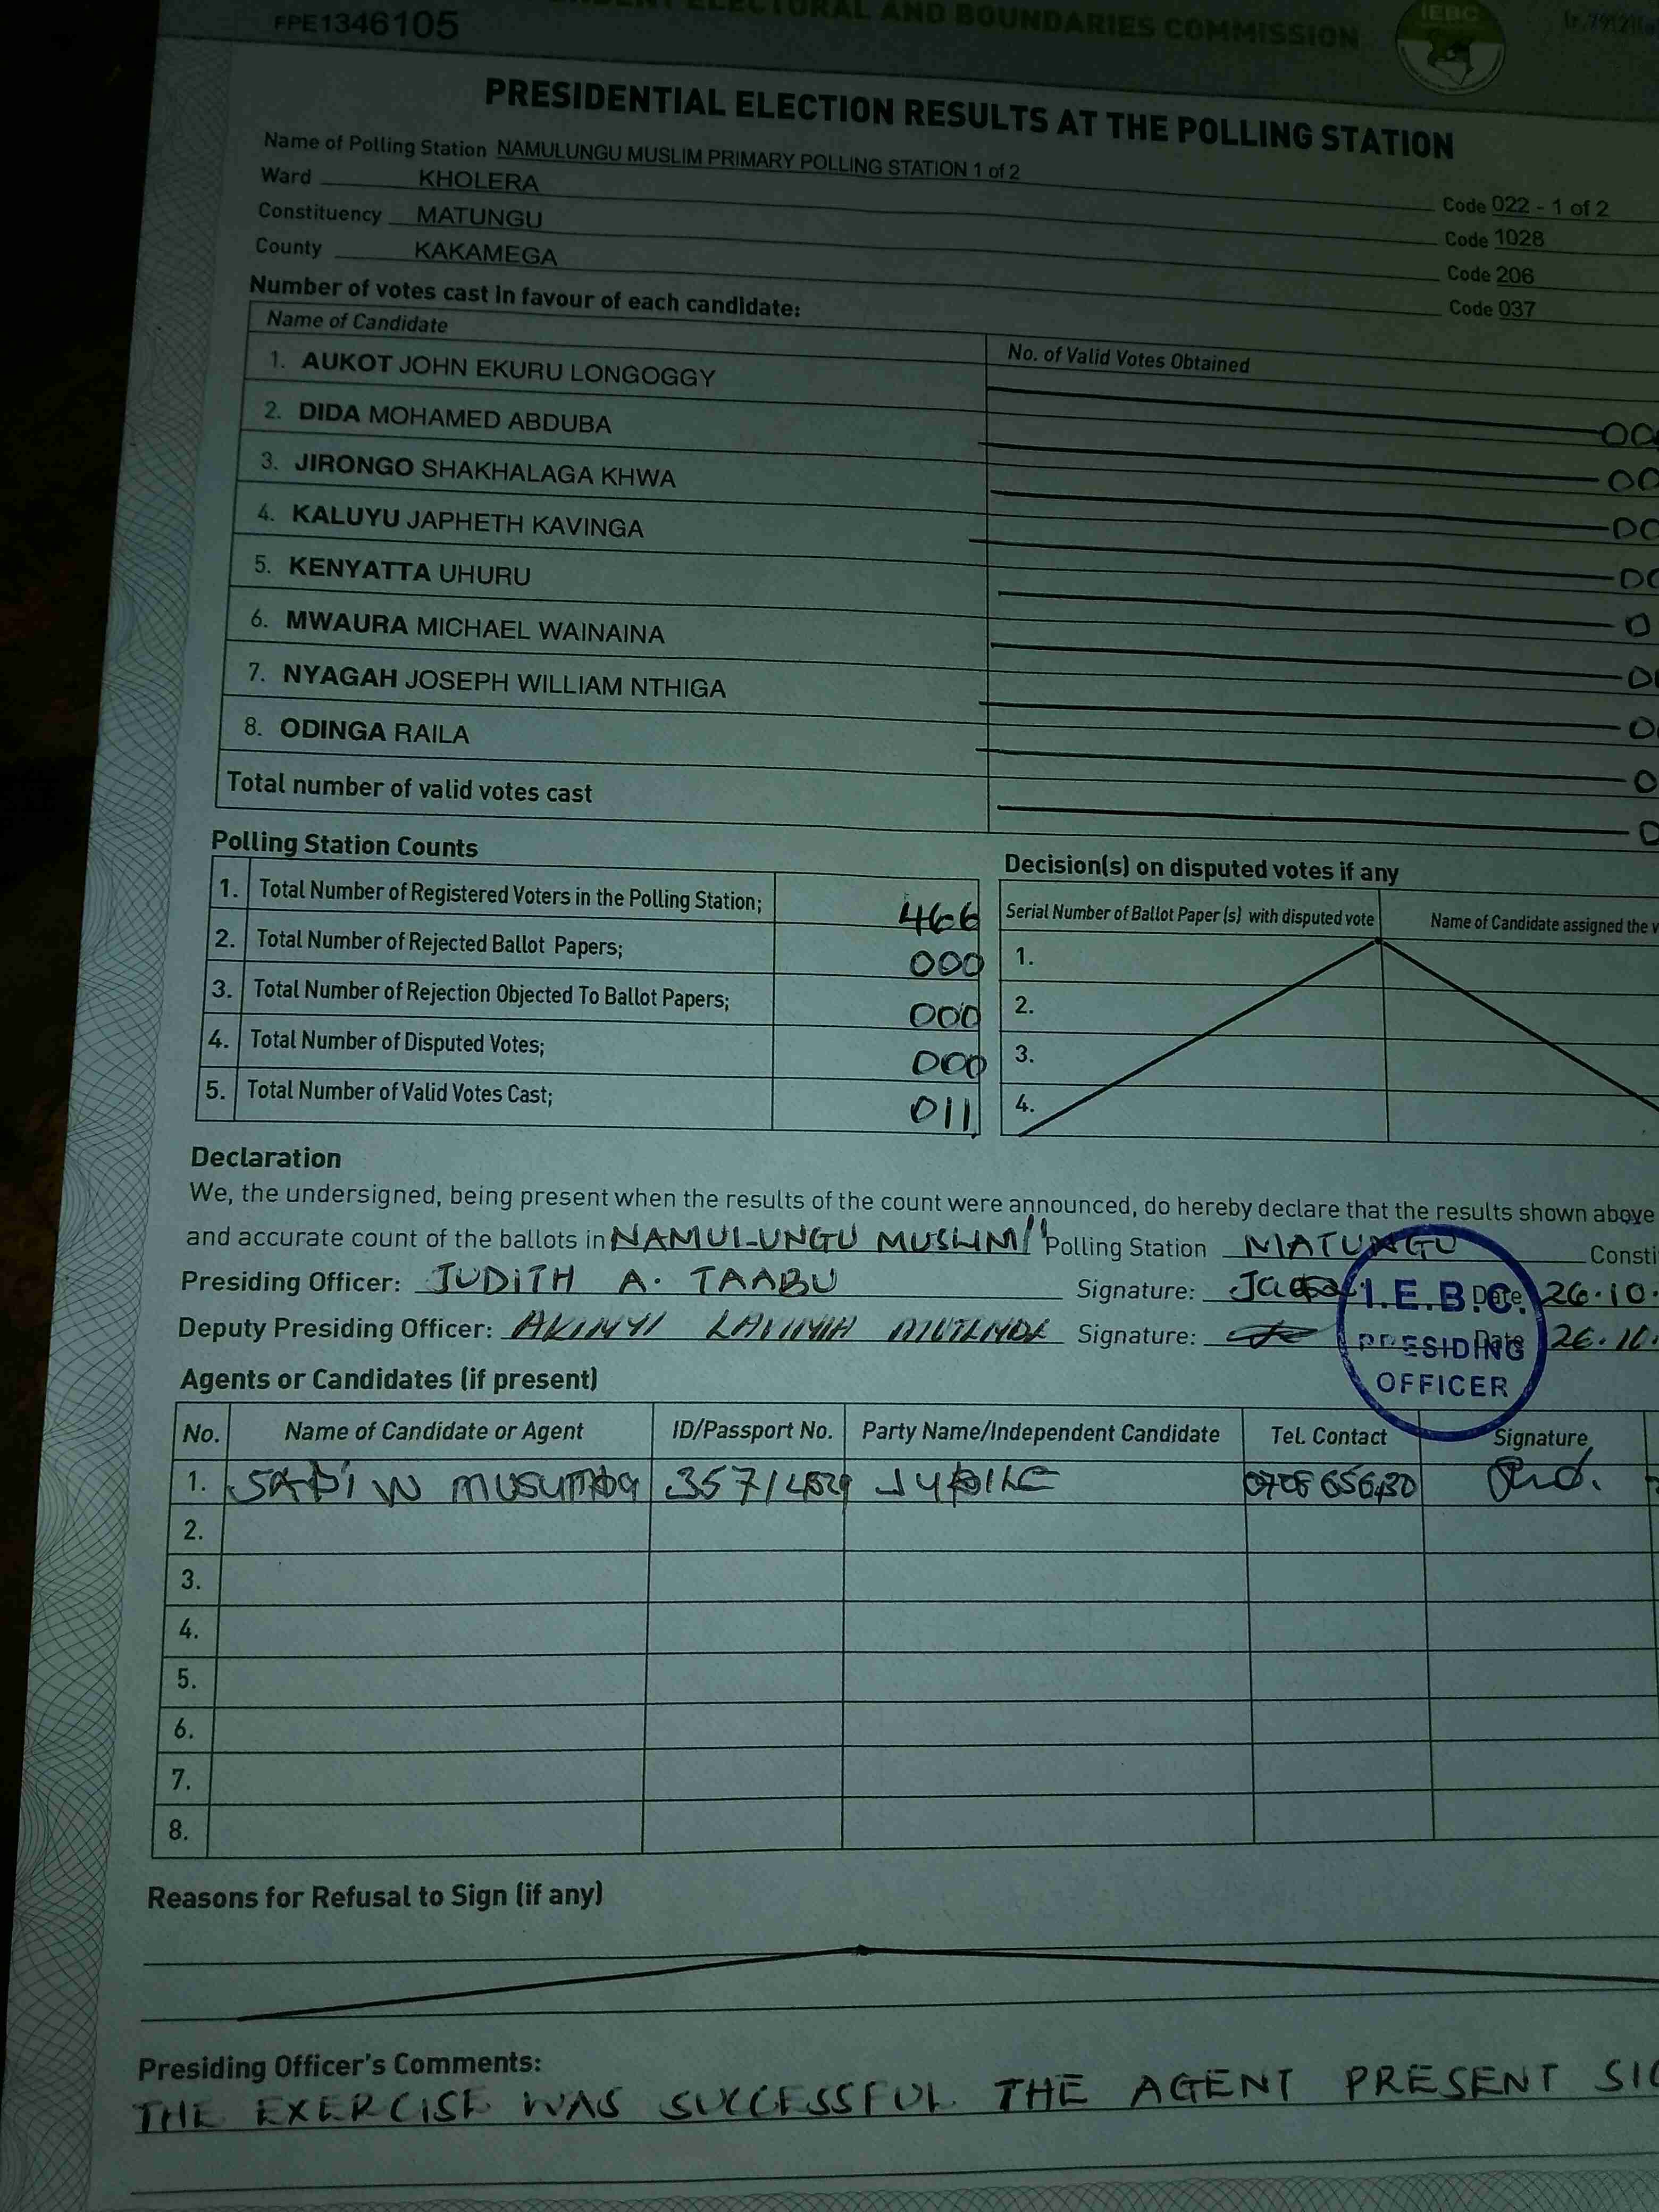 FPE1346105
ELECTORAL AND BOUNDARIES COMMISSION
IEBC
PRESIDENTIAL ELECTION RESULTS AT THE POLLING STATION
Name of Polling Station NAMULUNGU MUSLIM PRIMARY POLLING STATION 1 of 2 Code 022 - 1 of 2
Ward KHOLERA Code 1028
Constituency MATUNGU Code 206
County KAKAMEGA Code 037
Number of votes cast in favour of each candidate:
Name of Candidate No. of Valid Votes Obtained
1. AUKOT JOHN EKURU LONGOGGY 00
2. DIDA MOHAMED ABDUBA 00
3. JIRONGO SHAKHALAGA KHWA 00
4. KALUYU JAPHETH KAVINGA 00
5. KENYATTA UHURU 0
6. MWAURA MICHAEL WAINAINA 0
7. NYAGAH JOSEPH WILLIAM NTHIGA 0
8. ODINGA RAILA 0
Total number of valid votes cast 0
Polling Station Counts
1. Total Number of Registered Voters in the Polling Station; 466
2. Total Number of Rejected Ballot Papers; 000
3. Total Number of Rejection Objected To Ballot Papers; 000
4. Total Number of Disputed Votes; 000
5. Total Number of Valid Votes Cast; 011
Decision(s) on disputed votes if any
Serial Number of Ballot Paper (s) with disputed vote Name of Candidate assigned the
1.
2.
3.
4.
Declaration
We, the undersigned, being present when the results of the count were announced, do hereby declare that the results shown above
and accurate count of the ballots in NAMULUNGU MUSLIM Polling Station MATUNGU Consti
Presiding Officer: JUDITH A. TAABU Signature: Date 26.10.
Deputy Presiding Officer: AKINYI LAVINIA Signature: Date 26.10.
I.E.B.C.
PRESIDING
OFFICER
Agents or Candidates (if present)
No. Name of Candidate or Agent ID/Passport No. Party Name/Independent Candidate Tel. Contact Signature
1. W JUBILE
2.
3.
4.
5.
6.
7.
8.
Reasons for Refusal to Sign (if any)
Presiding Officer's Comments:
THE EXERCISE WAS SUCCESSFUL THE AGENT PRESENT SIG